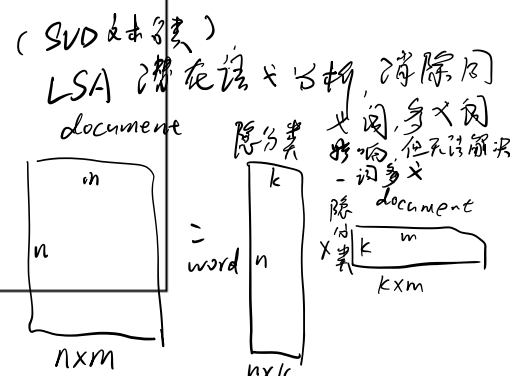 (SVD文本分类)
LSA 潜在语义分析,消除同
义词,多义词
影响,但无法解决
一词多义
document
隐分类
m
n
=
word
k
n
隐分类
x
document
k
m
k×m
n×m
n×k